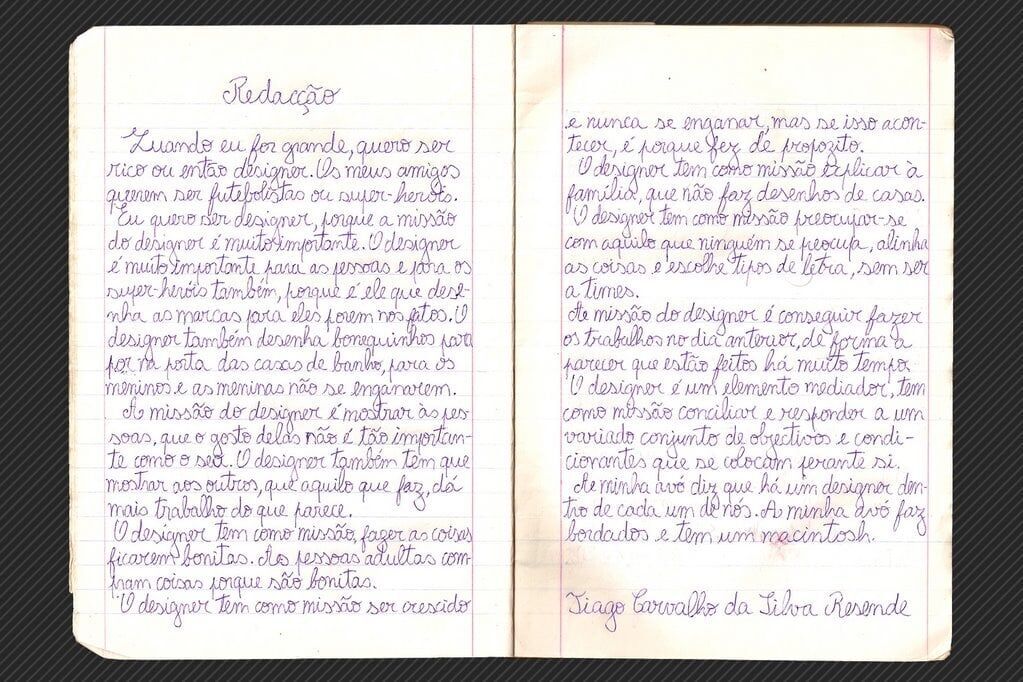 Redacção
Quando eu for grande, quero ser
rico ou então designer. Os meus amigos
querem ser futebolistas ou super-heróis.
Eu quero ser designer, porque a missão
do designer é muito importante. O designer
é muito importante para as pessoas e para os
super-heróis também, porque é ele que dese-
nha as marcas para eles porem nos fatos. O
designer também desenha bonequinhos para
por na porta das casas de banho, para os
meninos e as meninas não se enganarem.
A missão do designer é mostrar às pes-
soas, que o gosto delas não é tão importan-
te como o seu. O designer também tem que
mostrar aos outros, que aquilo que faz, dá
mais trabalho do que parece.
O designer tem como missão, fazer as coisas
ficarem bonitas. As pessoas adultas com-
pram coisas porque são bonitas.
O designer tem como missão ser crescido
e nunca se enganar, mas se isso acon-
tecer, é porque fez de propozito.
O designer tem como missão explicar à
família, que não faz desenhos de casas.
O designer tem como missão preocupar-se
com aquilo que ninguém se preocupa, alinha
as coisas e escolhe tipos de letra, sem ser
a times.
A missão do designer é conseguir fazer
os trabalhos no dia anterior, de forma a
parecer que estão feitos há muito tempo.
O designer é um elemento mediador, tem
como missão conciliar e responder a um
variado conjunto de objectivos e condi-
cionantes que se colocam perante si.
A minha avó diz que há um designer den-
tro de cada um de nós. A minha avó faz
bordados e tem um macintosh.
Tiago Carvalho da Silva Resende